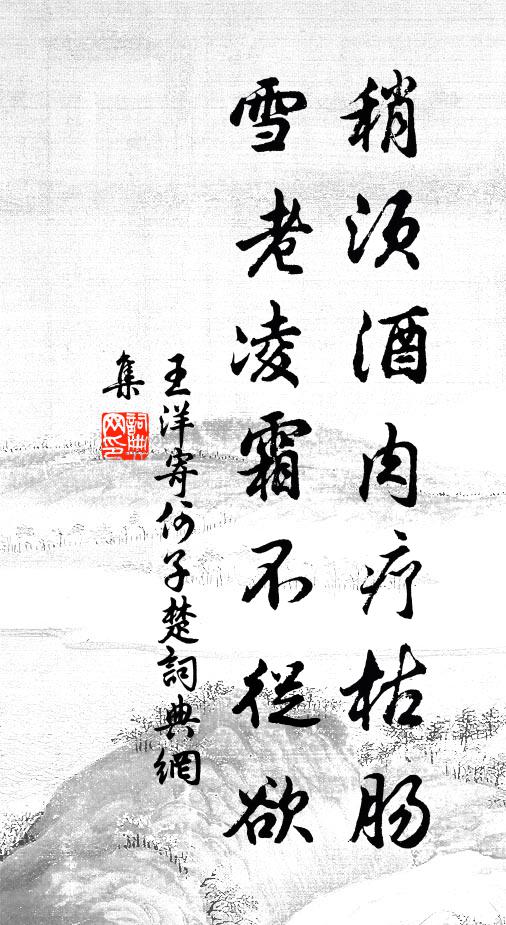 稍须酒肉疗枯肠
雪老凌霜不從欲
王洋寄何子楚詞典網
集
詞典网印